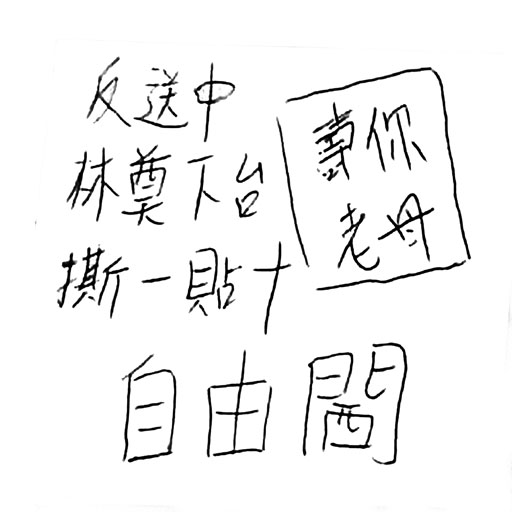 反送中
林奠下台
撕一貼十
壽你
老母
自由閪